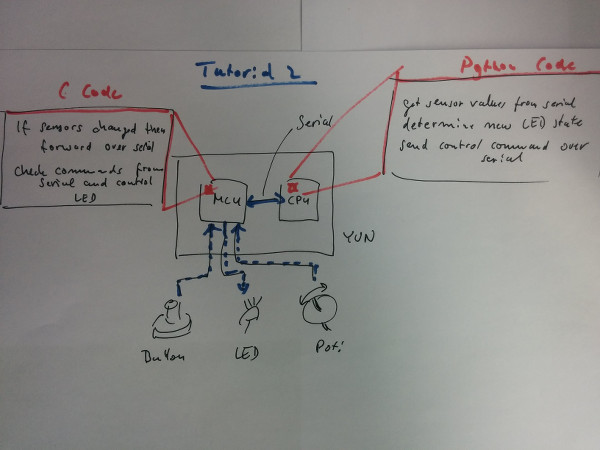 Tutorial 2
C Code
If sensors changed then
forward over serial
Check commands from
Serial and control
LED
Python Code
get sensor values from serial
determine new LED state
send control command over
serial
Serial
MCU
CPU
YUN
Button
LED
Poti